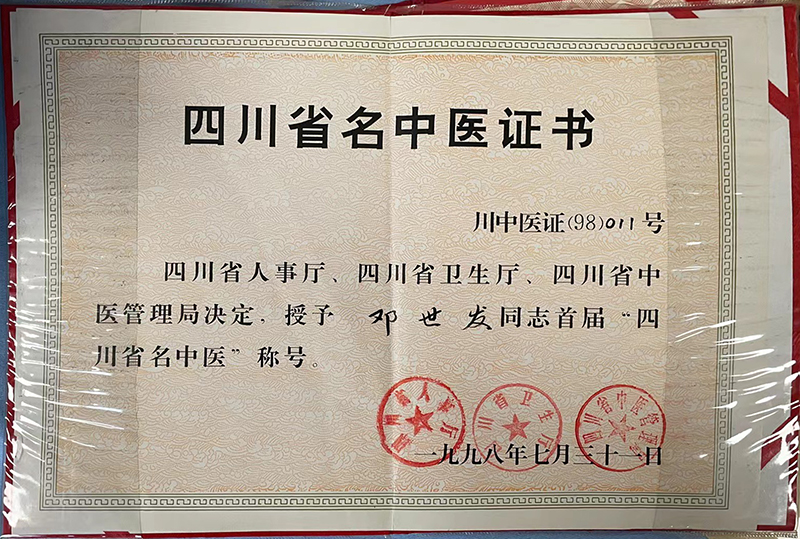 四川省名中医证书
川中医证(98)011号
四川省人事厅、四川省卫生厅、四川省中
医管理局决定，授予 邓世发同志首届“四
川省名中医”称号。
四川省人事厅
四川省卫生厅
四川省中医管理局
一九九八年七月三十一日